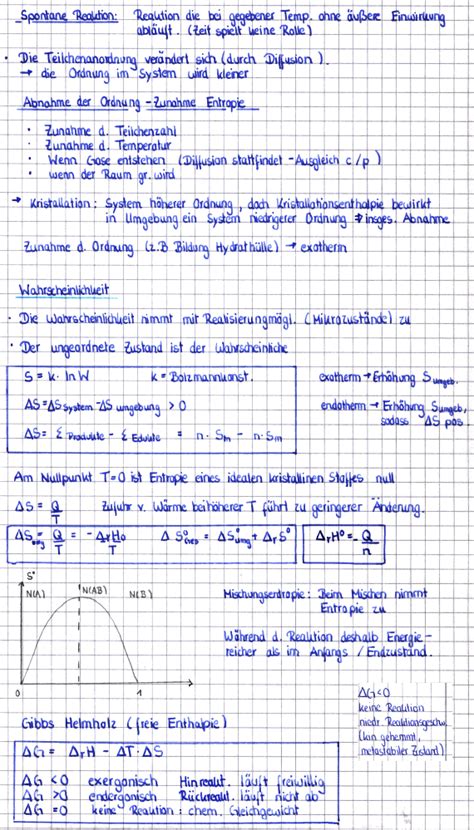 Spontane Reaktion: Reaktion die bei gegebener Temp. ohne äußere Einwirkung
abläuft. (Zeit spielt keine Rolle)
• Die Teilchenanordnung verändert sich (durch Diffusion).
→ die Ordnung im System wird kleiner
Abnahme der Ordnung - Zunahme Entropie
• Zunahme d. Teilchenzahl
• Zunahme d. Temperatur
• Wenn Gase entstehen (Diffusion stattfindet - Ausgleich c/p)
• wenn der Raum gr. wird
→ Kristallation: System höherer Ordnung, doch Kristallationsenthalpie bewirkt
in Umgebung ein System niedrigerer Ordnung → insges. Abnahme
Zunahme d. Ordnung (z.B Bildung Hydrathülle) → exotherm
Wahrscheinlichkeit
• Die Wahrscheinlichkeit nimmt mit Realisierungmögl. (Mikrozustände) zu
• Der ungeordnete Zustand ist der Wahrscheinliche
S = k · ln W k = Bolzmannkonst.
ΔS = ΔS System - ΔS umgebung > 0
ΔS = Σ Produkte - Σ Edukte = n · Sm - n · Sm
exotherm → Erhöhung S umgeb.
endotherm → Erhöhung S umgeb,
sodass ΔS pos.
Am Nullpunkt T=0 ist Entropie eines idealen kristallinen Stoffes null
ΔS = Q/T Zufuhr v. Wärme bei höherer T führt zu geringerer Änderung.
ΔS umg = Q/T = -ΔrH°/T Δ S° = ΔS°umg + ΔrS°
ΔrH° = - Q/n
S°
N(A) N(AB) N(B)
0 1
Mischungsentropie: Beim Mischen nimmt
Entropie zu
Während d. Reaktion deshalb Energie-
reicher als im Anfangs / Endzustand.
ΔG<0
keine Reaktion
niedr. Reaktionsgeschw.
(kin gehemmt,
metastabiler Zustand)
Gibbs Helmholz (freie Enthalpie)
ΔG = ΔrH - ΔT · ΔS
ΔG < 0 exergonisch Hinreakt. läuft freiwillig
ΔG > 0 endergonisch Rückreakt. läuft nicht ab
ΔG = 0 keine Reaktion: chem. Gleichgewicht